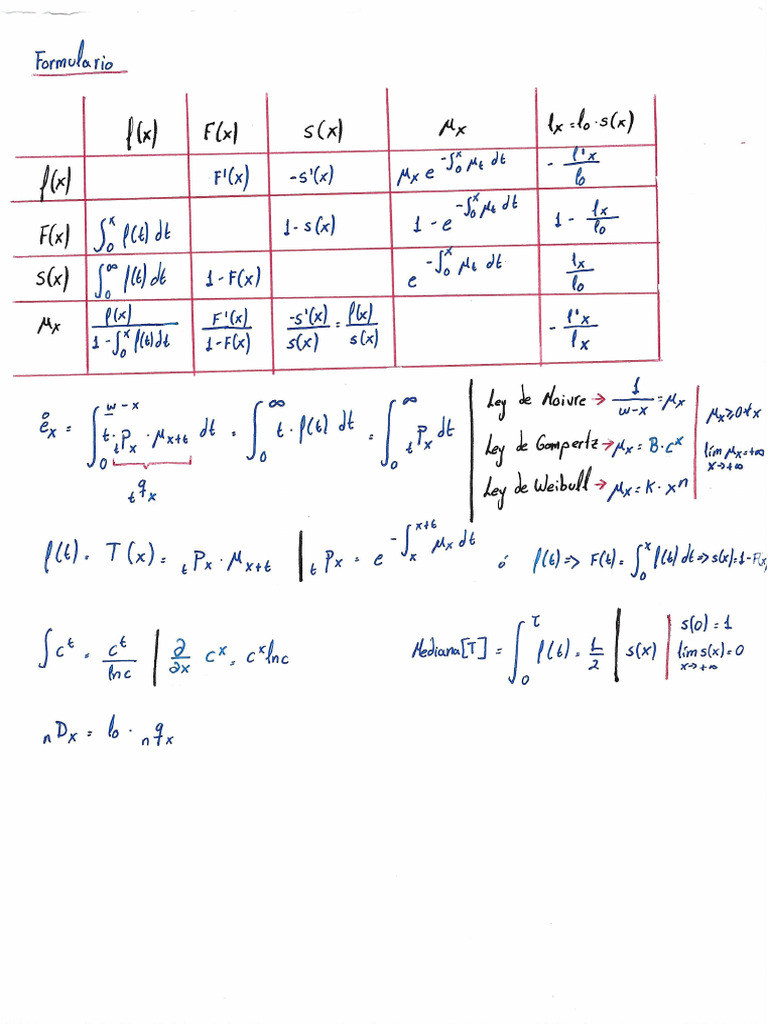 Formulario
f(x) F(x) s(x) μx lx = l0 · s(x)
f(x) F'(x) -s'(x) μx e^{-∫_0^x μt dt} -l'x/l0
F(x) ∫_0^x f(t) dt 1-s(x) 1-e^{-∫_0^x μt dt} 1-lx/l0
s(x) ∫_0^∞ f(t) dt 1-F(x) e^{-∫_0^x μt dt} lx/l0
μx f(x)/(1-∫_0^x f(t)dt) F'(x)/(1-F(x)) -s'(x)/s(x) = f(x)/s(x) -l'x/lx
e̊x = ∫_0^{w-x} t · tPx · μx+t dt = ∫_0^∞ t · f(t) dt = ∫_0^∞ tPx dt
tqx
Ley de Moivre → 1/(w-x) = μx
Ley de Gompertz → μx = B·c^x
Ley de Weibull → μx = K·x^n
μx ≥ 0 ∀x
lím μx = +∞
x→+∞
f(t) = T(x) = tPx · μx+t | tPx = e^{-∫_x^{x+t} μx dt} ó f(t) ⇒ F(t) = ∫_0^x f(t) dt ⇒ s(x) = 1-F(x)
∫c^t = c^t/lnc | ∂/∂x c^x = c^x lnc
Mediana[T] = ∫_0^τ f(t) = 1/2 | s(x) | s(0) = 1
lím s(x) = 0
x→+∞
nDx = l0 · nqx